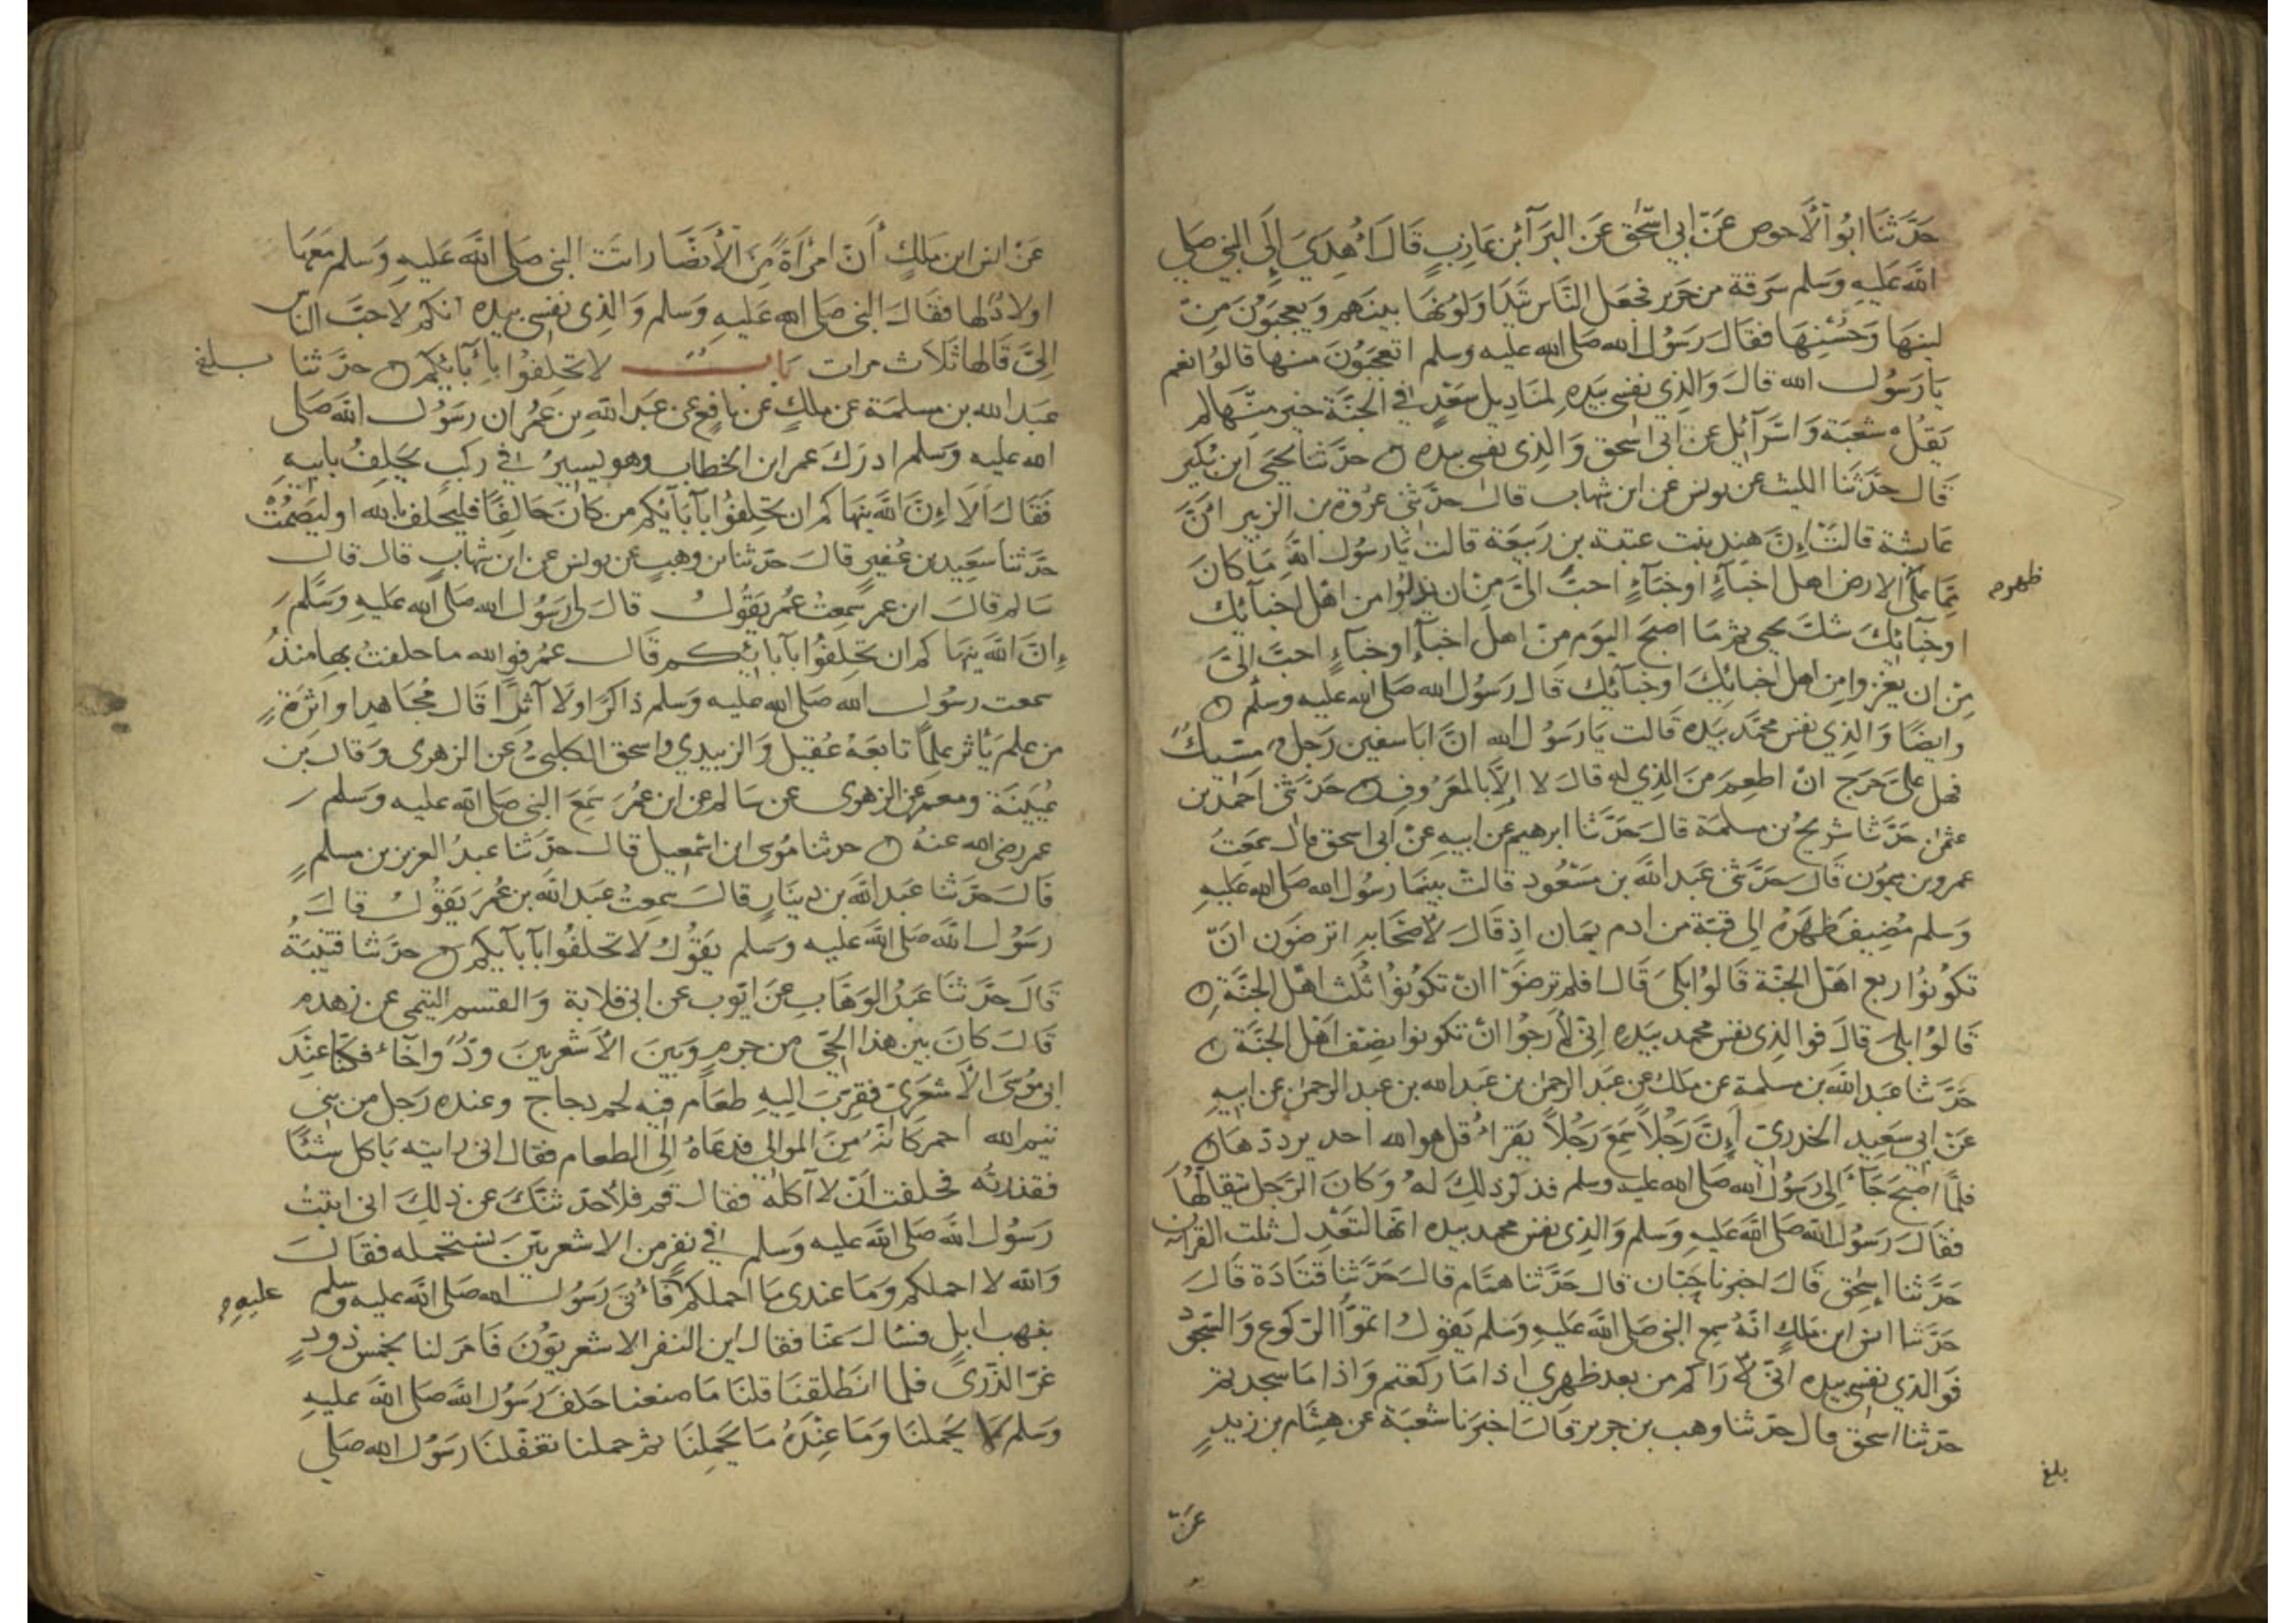 حَدَّثَنَا ابُو الْأَحوص عَنْ ابي اسْحٰق عَن البَرَآءِ بْن عَازِبٍ قَالَ أُهْدِيَ إِلَى النبي صلي
الله عَليهِ وَسَلم سَرَقة من حَرير فجعَل النَّاس يَتَدَاوَلُونَهَا بينَهم وَيعجبَوُنَ مِنْ
لينهَا وَحُسْنِهَا فقالَ رَسُوُل الله صَلى الله عليه وسلم اتعجَبوُنَ منها قالوُا نعم
يَا رَسُول الله قالَ وَالذِي نفسي بيَدِه لمنَادِيل سَعْدٍ في الجنَّة خير منْهَا لم
يَقُلْ شعْبَة وَاسْرَآئِل عن ابي اسْحق وَالذِى نفسى بيده ٥ حدَّثنَا يحيَى ابن بُكيْر
قَال حدَّثَنَا الليث عن يونس عن ابن شهاب قال حدَّثَنى عرُوة بن الزبير انَّ
عَايشة قالتْ إنَّ هند بنت عتبة بن رَبيعَة قالت يَا رسُول اللهِ مَا كانَ
مَّما علَى الارض اهل اخبَآءٍ او خبَآءٍ احبَّ الىَّ مِنْ ان يذلوُا من اهْل اخبآئك
او خبَآئِكَ شكَّ يحيى ثم مَا اصبحَ اليوَم مِنْ اهل اخبآءٍ او خباءٍ احبَّ الىَّ
مِنْ ان يعزوا من اهل اخبائِكَ او خبَآئك قال رَسُول الله صَلى الله عليه وسلم ٥
وايضًا وَالذِي نفس محمَّد بيَده قَالت يَا رَسُول الله انَّ ابا سفين رَجل مسّيك
فهل علىَّ حَرَج انْ اطعِمَ مَن الذِي له قالَ لا إلّا بالمعَرُوفِ ٥ حَدَّثنى احمد بن
عثمٰن حَدَّثنا شرَيحُ بن مسلمَة قالَ حَدَّثنا ابرهيم عن ابيهِ عنْ ابى اسحق قال سمعَتُ
عمرو بن ميموُن قَالَ حَدَّثنى عَبد اللهَ بن مَسْعُود قالَ بينمَا رسُول الله صَلى الله عليه
وَسَلم مُضِيفَ ظَهرَهُ الى قبّة من ادم يمَان اذ قالَ لأَصْحَابهِ اترضَون انّ
تكوُنوُا ربع اهَل الجنّة قَالوُا بلَى قَالَ افلم ترضَوْا انْ تكوُنوُا ثلُث اهْل الجنَّة ٥
قَالوُا بلى قالَ فوالذِى نفس محمد بيَده إنىّ لأَرجوُا انْ تكونوا نصِف اهْل الجنَّة ٥
حَدَّثنا عَبَد الله بن مسلمة عن ملك عن عَبَد الرحمٰن بن عَبدالله بن عبد الرحمٰن عن ابيهِ
عَنْ ابى سَعِيد الخدرىّ أنَّ رَجُلاً سَمِعَ رَجُلاً يَقرأُ قل هو الله احد يرددهَا ٥
فلمَّا اصْبحَ جَآءَ الِى رَسُوُل الله صَلى الله عليه وسلم فذكر ذلِكَ لهُ وَكانَ الرَّجل يتقالّهَا
فقالَ رَسُول الله صَلى الله عَليه وَسَلم وَالذِى نفس محمد بيده انّها لتَعْدِل ثلث القرآن
حَدَّثنا إسحٰق قَالَ اخبرنا حَبّان قال حَدَّثنا همّام قالَ حَدَّثنا قتَادَة قَالَ
حَدَّثنا انس ابن مَالكٍ انّهُ سِمعِ النبى صَلى الله عَليهِ وَسَلم يَقوُلُ اتموُّا الرّكوع وَالسّجود
فَوالذي نفسى بيده انىّ لَأرَاكم من بعد ظهري اذا مَا ركَعْتم وَاذا مَا سجدتم
حدّثنا اسحٰق قال حدّثنا وهب بن جرير قالَ اخبَرنا شعْبَة عن هشَام بن زيدٍ
ظهره
بلغ
عَنْ
عَنْ انس ابن ملكٍ أنَ امْرَأةً مِنَ الْأَنصَار اتتَ النبى صَلى الله عَليهِ وَسَلم مَعَهَا
اولادٌ لها فقالَ النبى صَلى الله عَليهِ وَسَلم وَالذِى نفسى بيده انكم لاحَبّ الناس
اِلىَّ قَالها ثلَاث مرات بَابُ لا تحَلِفوُا بِأبَآئِكُمْ ٥ حدَّثنا
بلغ
عَبَد الله بن مسلمَة عن ملكٍ عن نافعٍ عن عَبدَ اللهِ بن عمُر ان رسَوُل الله صَلى
الله عليه وَسَلم ادرَكَ عمر ابن الخطاب وهو يَسيرُ في ركبٍ يحَلِفُ بابيهِ
فَقَالَ اَلَا إنَ الله ينهَا كم ان تحَلِفوُا بآبآئِكم من كانَ حَالِفًا فليحَلف بالله او ليَصْمُتْ
حَدَّثنا سَعِيد بن عُفيرٍ قالَ حَدّثنا بن وهبٍ عن يونس عن ابن شهابٍ قال قال
سَالم قالَ ابن عمر سَمعِتُ عمُر يقَوُلُ قالَ لي رَسُول الله صَلى الله عليه وَسَلَّمَ
إنَّ الله ينهَا كم ان تحَلِفوُا بآبائِكم قَال عمُر فوالله ما حلفتُ بها منذُ
سمعت رسوُل الله صَلى الله عليه وسلم ذاكرًا ولَا آثرًا قَال مُجَاهد او اثرَةٍ
من علم يَأثر علمًا تابعَهُ عُقيل وَالزبيدي واسحق الكلبىُّ عن الزهرى وَقالَ بن
عُيَيْنَة ومعمر عن الزهرى عن سَالم عن ابن عمُرَ سَمِعَ النبى صَلى الله عليه وسلم
عمر رضى الله عنهُ ٥ حدثنا موُسى ابن اسْمعيل قالَ حدَّثنا عبدُ العزيز بن مسلمٍ
قَالَ حدَّثنا عَبَد الله بن دينَارٍ قالَ سَمِعتُ عَبَد الله بن عُمرَ يَقوُلُ قالَ
رسَوُل اللهَ صَلى الله عليه وَسَلم يقَوُلُ لا تحلفوُا بآبآيكم ٥ حدّثنا قتَيبَةُ
قَالَ حدَّثنَا عَبَدُ الوَهَّابِ عَن ايّوب عن ابى قلابة وَالقسم التيمى عن زهدم
قَالَ كانَ بين هَذا الحيّ من جرمٍ وَبَينَ الأَشعَرِيينَ وُدٌّ واخآء فكنّا عنْدَ
ابى موُسَى الأَشعَرىّ فقرِّبَ اليهِ طعَامٌ فيهِ لحم دجاج وعنده رَجل من بنى
تيم الله احمر كَانّهُ منَ الموالى فدَعاهُ إلَى الطعام فقال انى رايته ياكل شيْئًا
فقذرتُه فحلفت انْ لا آكلهُ فقال قم فلأُحَدّ ثنّكَ عن ذلِكَ انى اتيْتُ
رَسُول اللهَ صَلى الله عليه وَسَلم في نفرٍ من الاشعريّينَ نستحمله فقَالَ
وَالله لا احملكم وَمَا عندى مَا احملكم فَأُتىَ رَسُوُل الله صَلى الله عليه وسلم
عليهِ
بنهب ابلٍ فسَالَ عنّا فقال اين النفر الاشعريوُّنَ فَامَر لنا بخمس ذودٍ
غرّ الذّرىَ فلما انطَلقنَا قلنا مَا صنعنا حَلفَ رَسُول الله صَلى الله عليهِ
وَسَلم لا يحَملنَا وَمَا عِنْدَهُ مَا يحَمِلنَا ثمّ حملنا تغفّلنا رَسُول الله صَلى